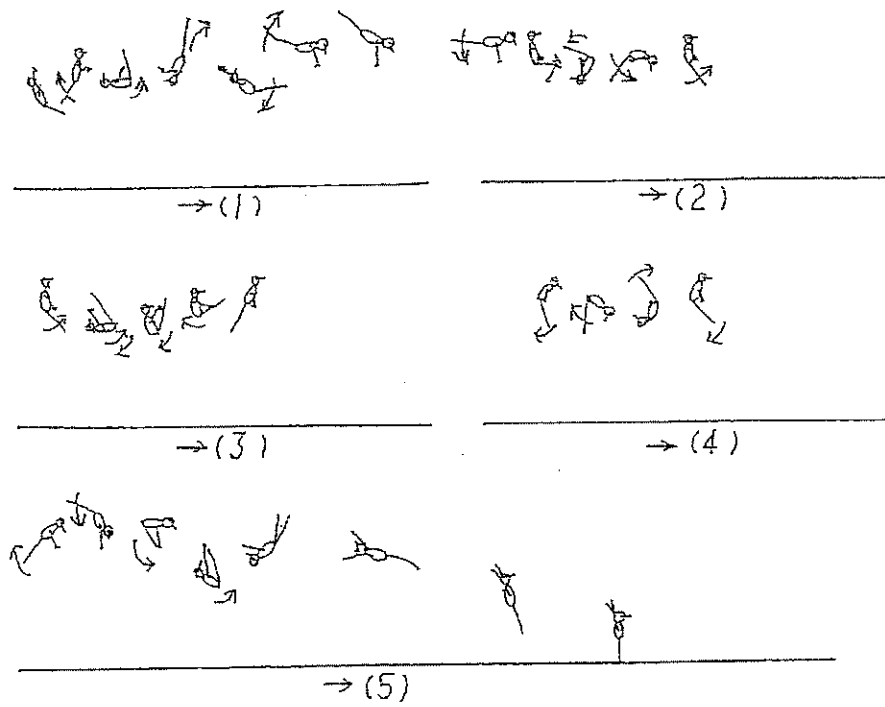 →(1)
→(2)
→(3)
→(4)
→(5)